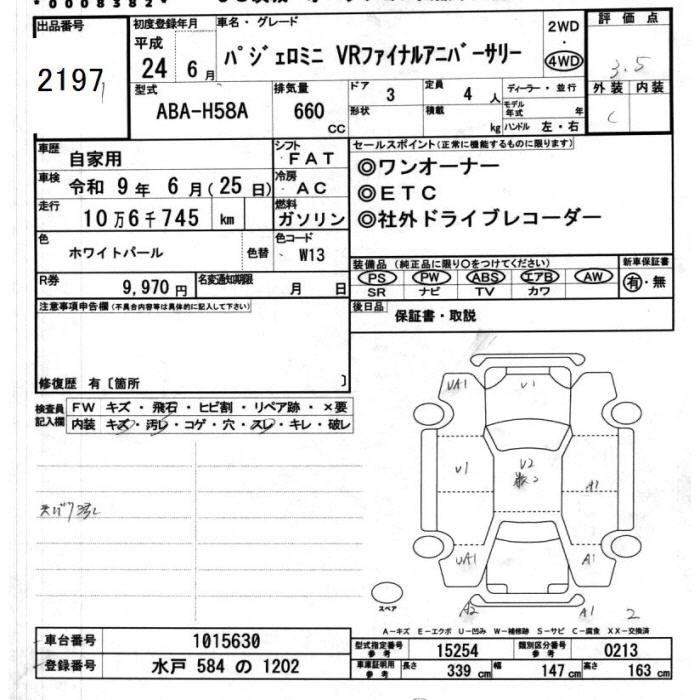 *0008382*
出品番号
2197
初度登録年月
平成
24 6 月
車名・グレード
パジェロミニ VRファイナルアニバーサリー
2WD
・
4WD
評価点
3.5
外装 内装
C
型式
ABA-H58A
排気量
660
CC
ドア
3
形状
定員
4 人
積載
kg
ディーラー・並行
モデル年式 年
ハンドル 左・右
車歴
自家用
シフト
FAT
車検
令和 9 年 6 月(25 日)
冷房
AC
走行
10万6千745 km
燃料
ガソリン
色
ホワイトパール
色替
色コード
W13
R券
9,970 円
名変通知期限
月 日
セールスポイント(正常に機能するものに限ります)
◎ワンオーナー
◎ETC
◎社外ドライブレコーダー
装備品(純正品に限り○をつけてください)
PS PW ABS エアB AW
SR ナビ TV カワ
新車保証書
有・無
後日品
保証書・取説
注意事項申告欄(不具合内容等は具体的に記入して下さい)
修復歴 有〔箇所 〕
検査員記入欄
FW キズ・飛石・ヒビ割・リペア跡・×要
内装 キズ・汚レ・コゲ・穴・スレ・キレ・破レ
UA1
U1
U1
U2
A1
UA1
A1
A2
A1
2
スペア
A-キズ E-エクボ U-凹み W-補修跡 S-サビ C-腐食 XX-交換済
車台番号
1015630
登録番号
水戸 584 の 1202
型式指定番号
参考
15254
類別区分番号
参考
0213
車庫証明用
参考
長さ 339 cm 幅 147 cm 高さ 163 cm